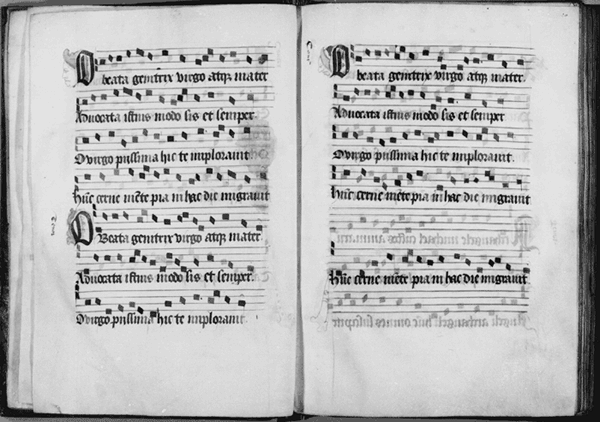 O beata genitrix virgo atqz mater
Advocata istius modo sis et semper
O virgo piissima hic te imploravit
Hūc cerne mēte pia in hac die migravit
O Beata genitrix virgo atqz mater
Advocata istius modo sis et semper.
O virgo piissima hic te imploravit.
O beata genitrix virgo atqz mater.
Advocata istius modo sis et semper
O virgo piissima hic te imploravit.
Hūc cerne mēte pia in hac die migravit
Hūc cerne mēte pia in hac die migravit